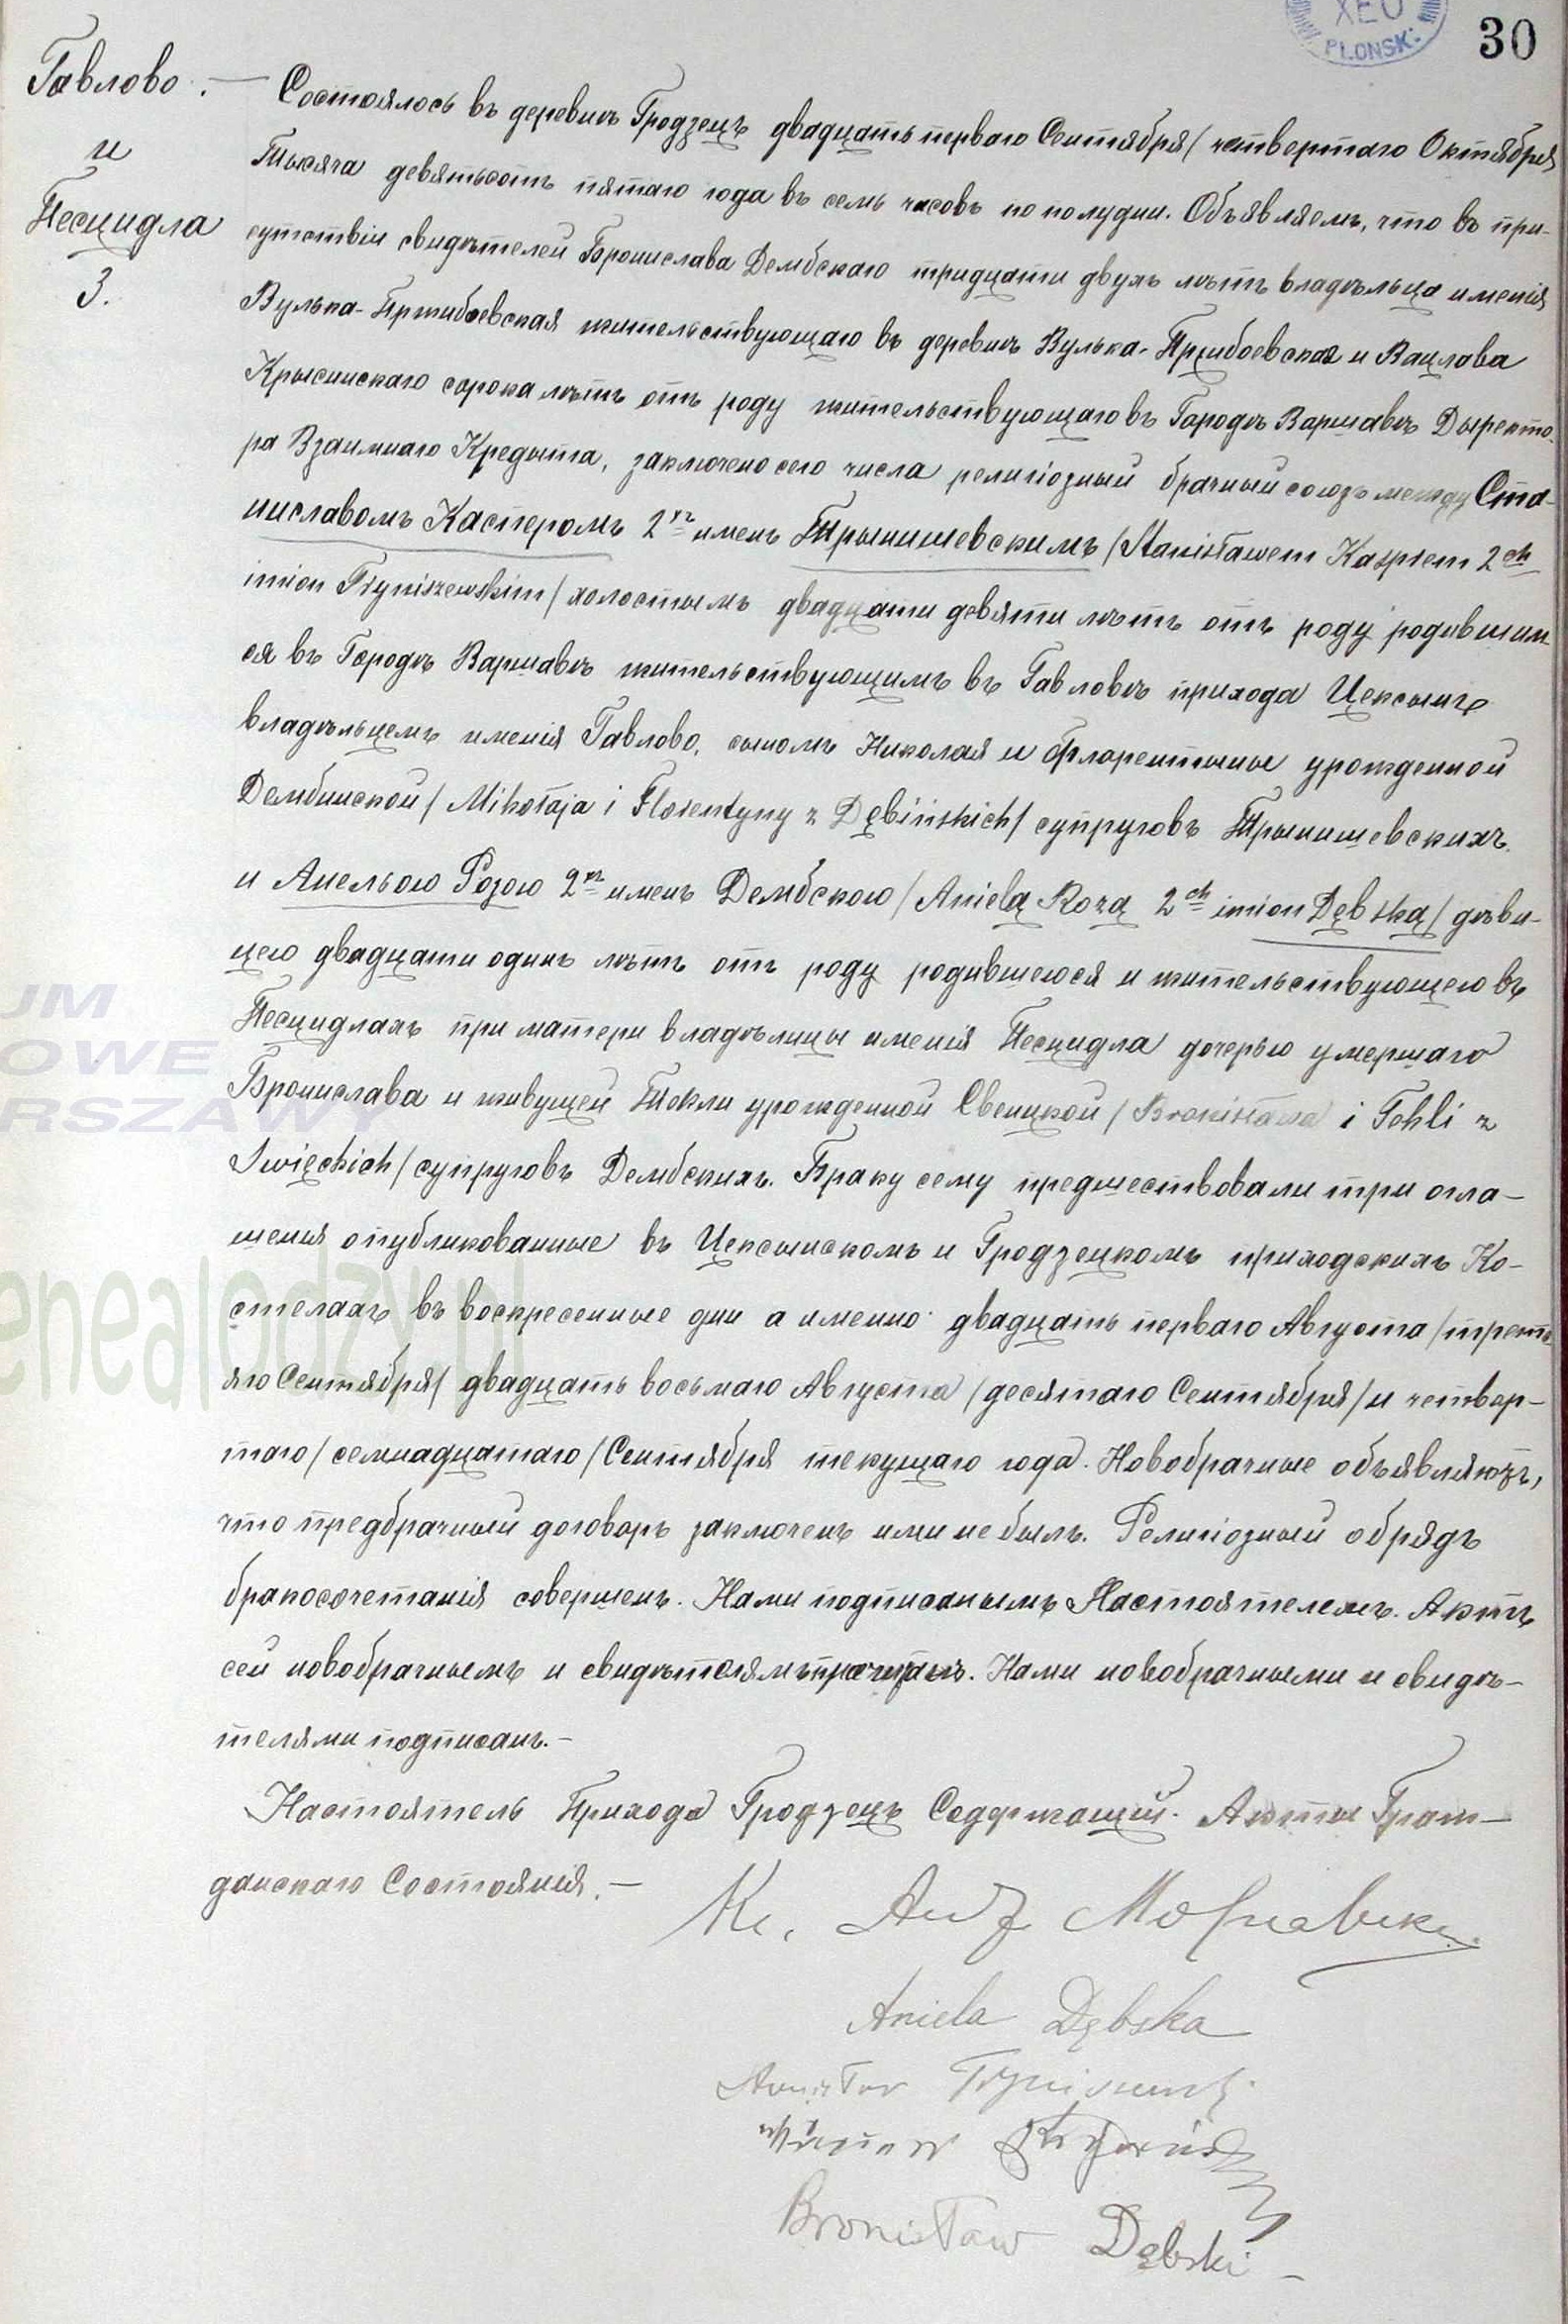 30
PŁONSK.
Гавлово. —
и
Песцидла
3.
Состоялось въ деревнѣ Гродзецъ двадцать перваго Сентября / четвертаго Октября
Тысяча девятьсотъ пятаго года въ семь часовъ по полудни. Объявляемъ, что въ при-
сутствіи свидѣтелей Бронислава Дембскаго тридцати двухъ лѣтъ владѣльца именія
Вулька-Пржибоевская жительствующаго въ деревнѣ Вулька-Прцибоевская и Вацлава
Крысинскаго сорока лѣтъ отъ роду жительствующаго въ Городѣ Варшавѣ Дыректо-
ра Взаимнаго Кредыта, заключено сего числа религіозный брачный союзъ между Ста-
ниславомъ Касперомъ 2хъ именъ Трынишевскимъ / Stanisławem Kasprem 2ch
imion Tryniszewskim / холостымъ двадцати девяти лѣтъ отъ роду родившим-
ся въ Городѣ Варшавѣ жительствующимъ въ Гавловѣ прихода Цексынъ
владѣльцемъ именія Гавлово, сыномъ Николая и Флорентыны урожденной
Дембинской / Mikołaja i Florentyny z Dębińskich / супруговъ Трынишевскихъ
и Анелью Розою 2хъ именъ Дембскою / Anielą Rozą 2ch imion Dębską / дѣви-
цею двадцати одинъ лѣтъ отъ роду родившеюся и жительствующею въ
Песцидлахъ при матери владѣлицы именія Песцидла дочерью умершаго
Бронислава и живущей Текли урожденной Свенцкой / Bronisława i Tekli z
Święckich / супруговъ Дембскихъ. Браку сему предшествовали три огла-
шенія опубликованные въ Цексынскомъ и Гродзецкомъ приходскихъ Ко-
стелахъ въ воскресенные дни а именно: двадцать перваго Августа / треть-
яго Сентября / двадцать восьмаго Августа / десятаго Сентября / и четвер-
таго / семнадцатаго / Сентября текущаго года. Новобрачные объявляютъ,
что предбрачный договоръ заключенъ ими не былъ. Религіозный обрядъ
бракосочетанія совершенъ. Нами подписанымъ Настоятелемъ. Актъ
сей новобрачнымъ и свидѣтелямъ прочитанъ. Нами новобрачными и свидѣ-
телями подписанъ. —
Настоятель Прихода Гродзецъ Содержащій. Акты Граж-
данскаго Состоянія. —
Aniela Dębska
Bronisław Dębski